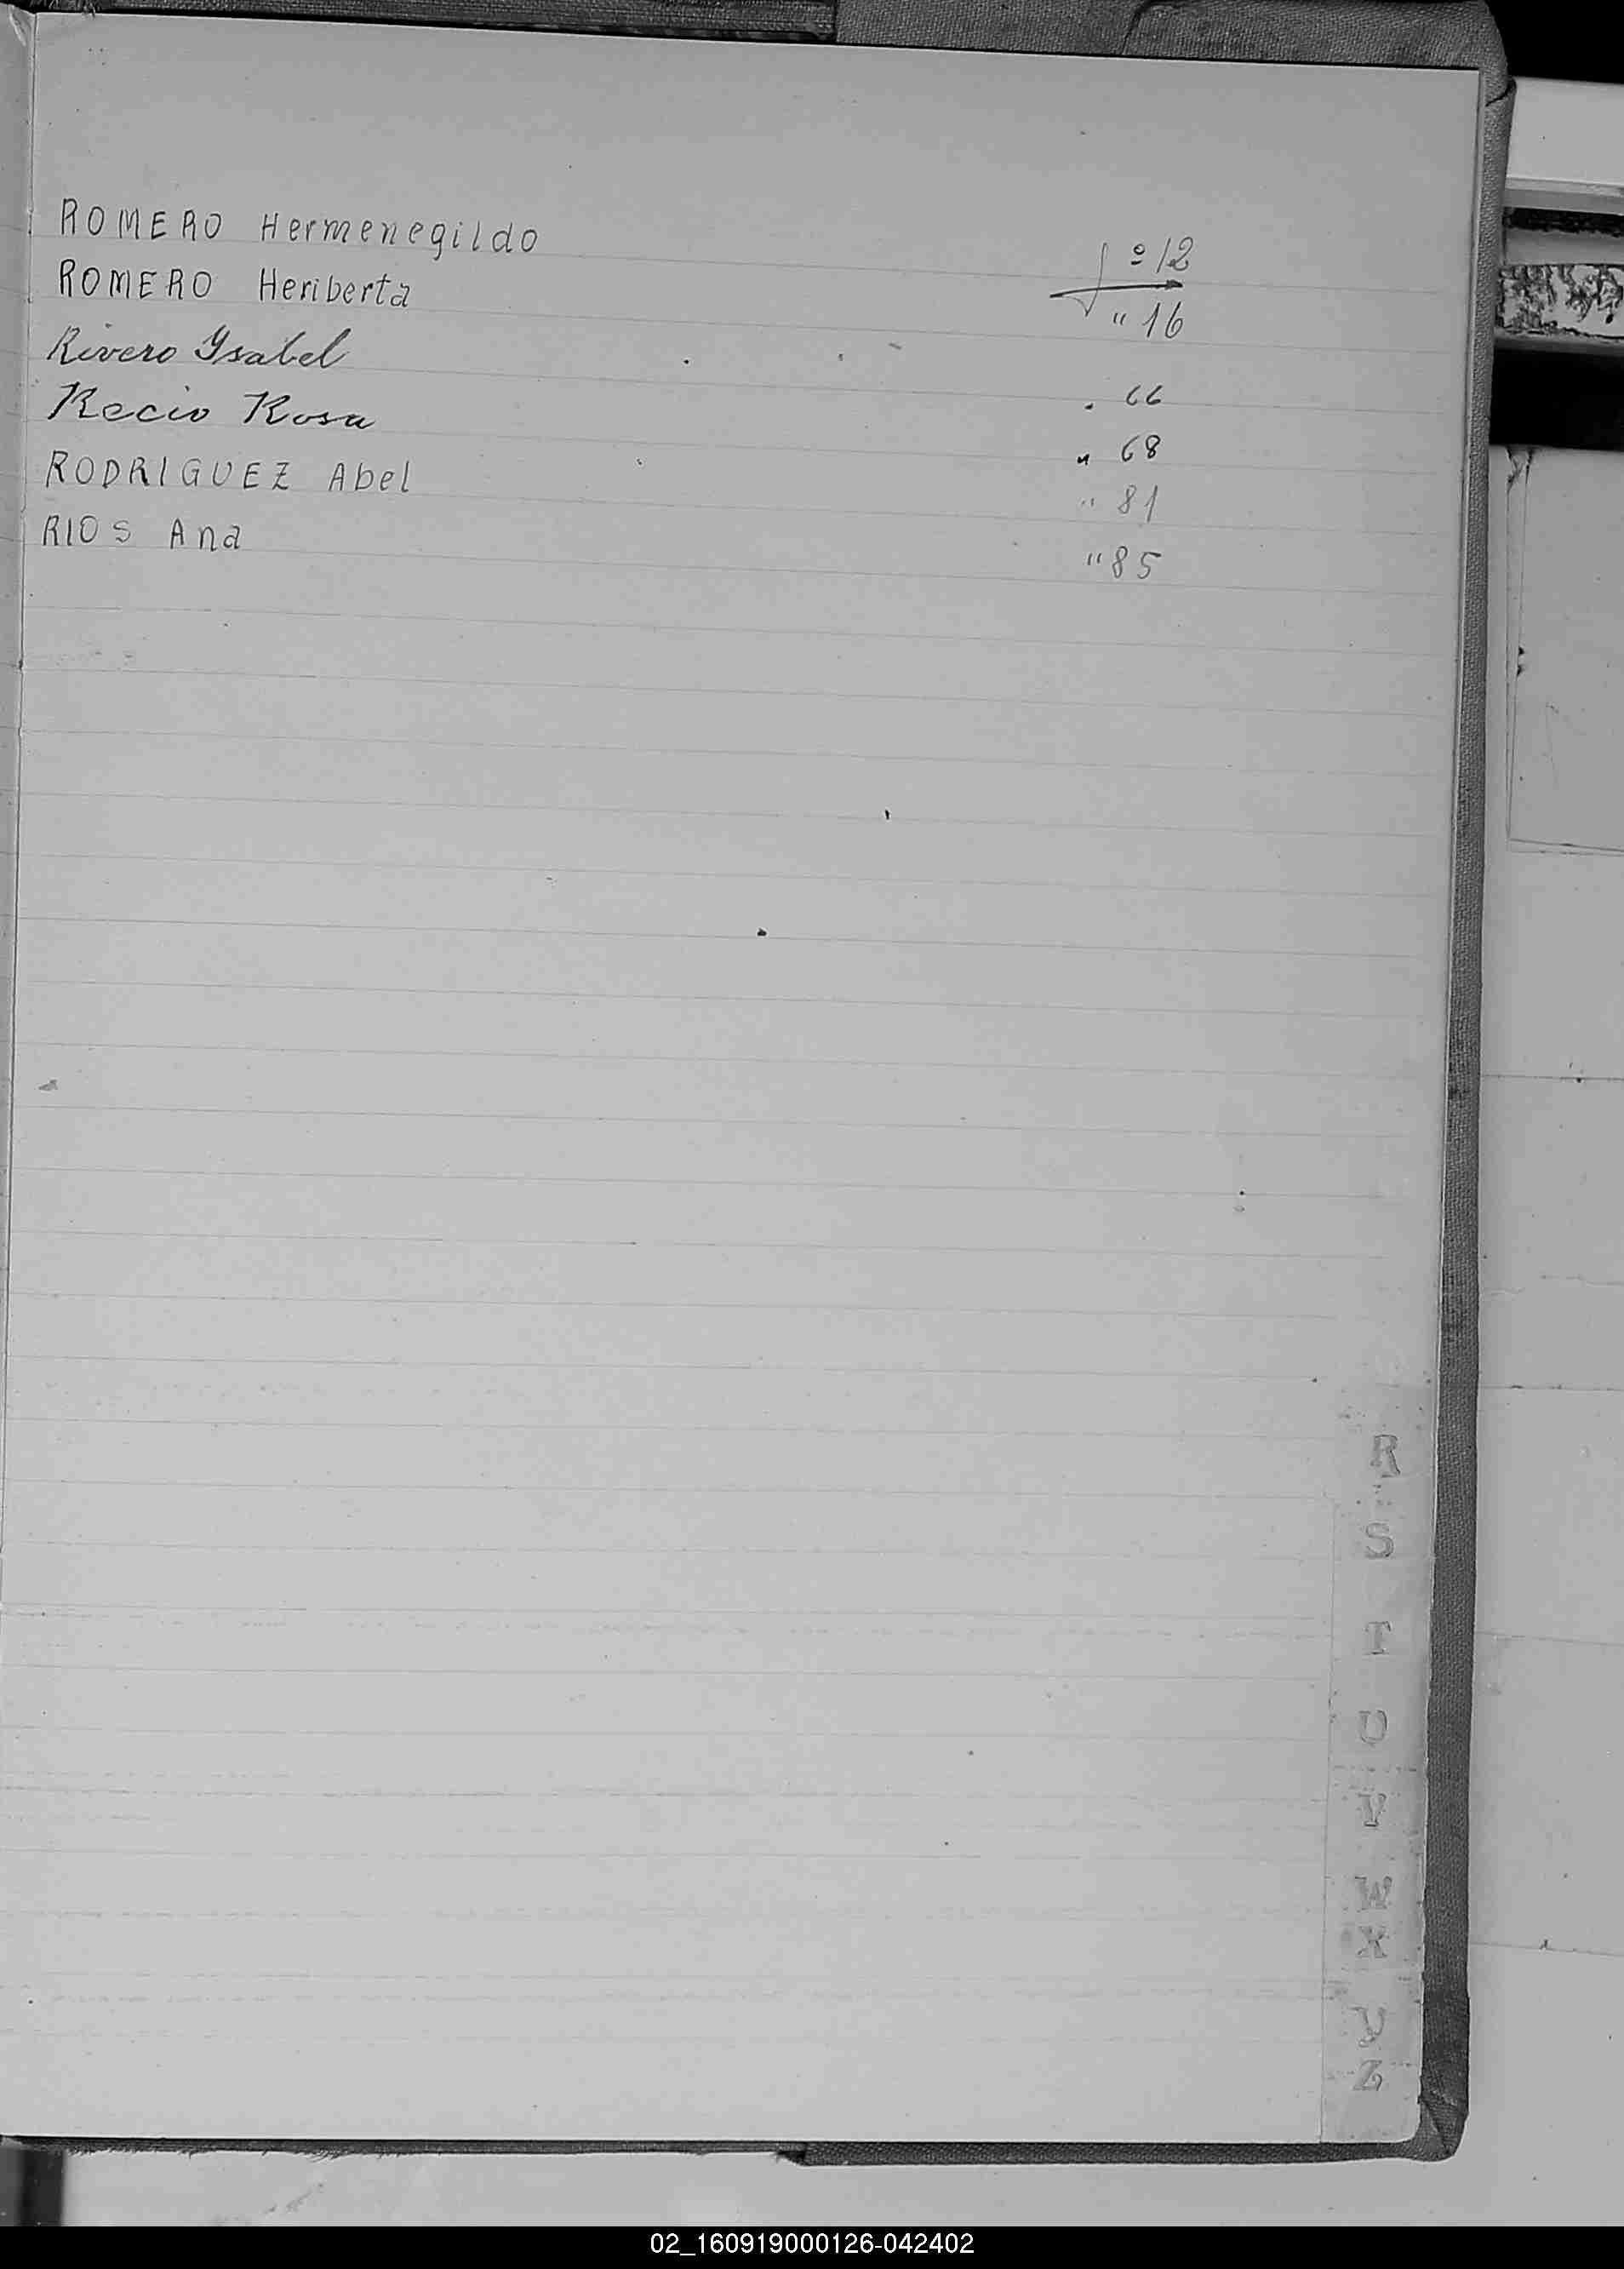 ROMERO Hermenegildo fº 12
ROMERO Heriberta " 16
Rivero Ysabel . 66
Recio Rosa " 68
RODRIGUEZ Abel " 81
RIOS Ana " 85
R
S
T
U
V
W
X
Y
Z
02_160919000126-042402